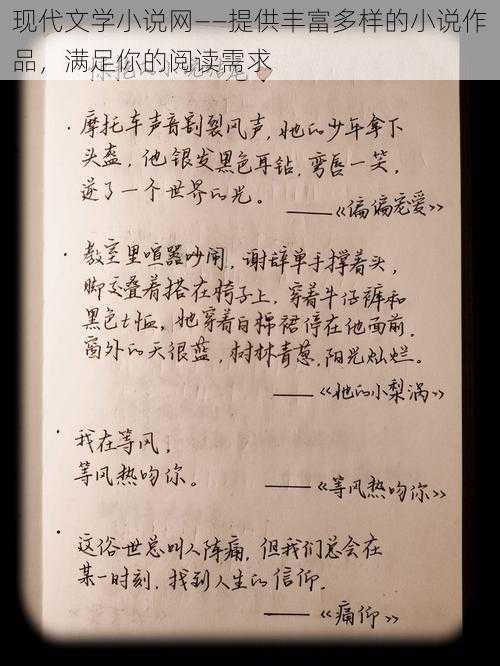 现代文学小说网——提供丰富多样的小说作
品，满足你的阅读需求
· 摩托车声音割裂风声，她的少年拿下
头盔，他银发黑色耳钻，弯唇一笑，
逆了一个世界的光。
——《偏偏宠爱》
· 教室里喧嚣吵闹，谢辞单手撑着头，
脚交叠着搭在椅子上，穿着牛仔裤和
黑色t恤。她穿着白棉裙停在他面前，
窗外的天很蓝，树林青葱，阳光灿烂。
——《她的小梨涡》
· 我在等风，
等风热吻你。
——《等风热吻你》
· 这俗世总叫人阵痛，但我们总会在
某一时刻，找到人生的信仰。
——《痛仰》